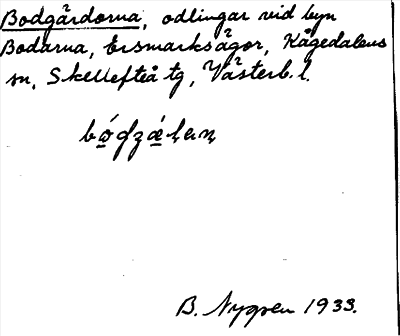 Bodgårdorna, odlingar vid byn
Bodarna, Ersmarksågor, Kågedalens
sn, Skellefteå tg, Västerb. l.
B. Nygren 1933.